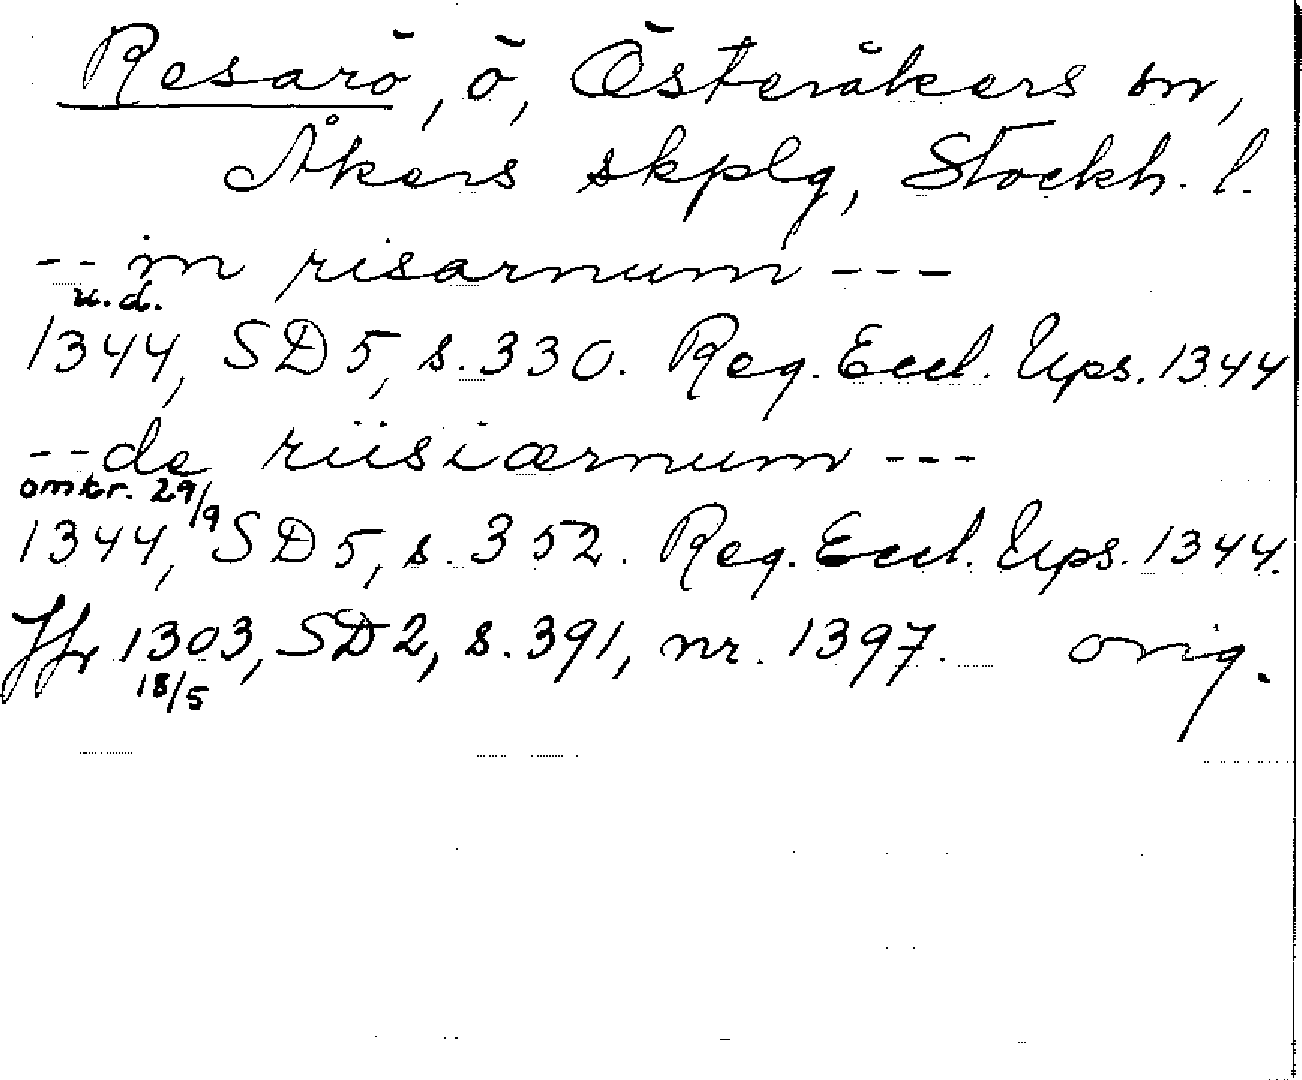 Resarö, ö, Österåkers sn,
Åkers skplg, Stockh. l.
-- in risarnum ---
u.d.
1344, SD 5, s. 330. Reg. Eccl. Ups. 1344
-- de riisiærnum ---
omkr. 29/9
1344, SD 5, s. 352. Reg. Eccl. Ups. 1344.
Jfr 1303, SD 2, s. 391, nr. 1397. orig.
18/5